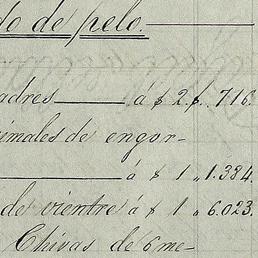 do de pelo.
adres á $ 2 $ 716.
imales de engor-
á $ 1 „ 1.384.
de vientre á $ 1 „ 6.023.
Chivas de 6 me-